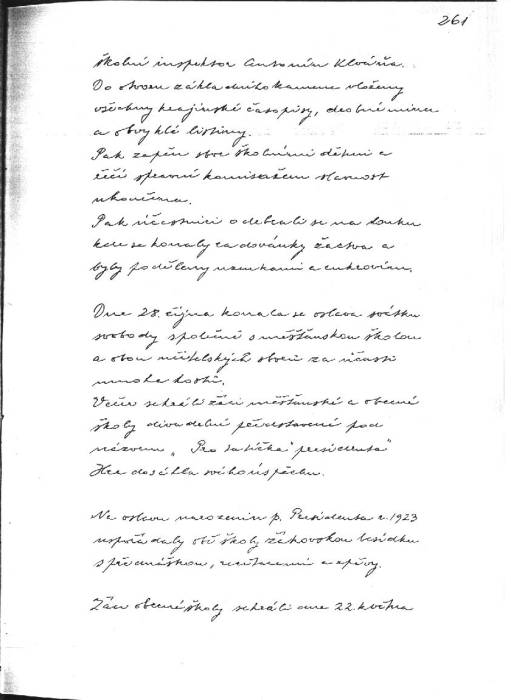 261
školní inspektor Antonín Klváňa.
Do otvoru základního kamene vloženy
všechny krajinské časopisy, drobné mince
a obvyklé listiny.
Pak zapěn sbor školními dětmi a
řečí správní komisařem slavnost
ukončena.
Pak účastníci odebrali se na louku
kde se konaly radovánky žactva a
byly poděleny uzenkami a cukrovím.
Dne 28. října konala se oslava svátku
svobody společně s měšťanskou školou
a obou učitelských sborů za účasti
mnoha hostí.
Večer sehráli žáci měšťanské a obecné
školy divadelní představení pod
názvem „Pro tatíčka presidenta"
Hra dosáhla svého úspěchu.
Na oslavu narozenin p. Presidenta r. 1923
uspořádaly obě školy žákovskou besídku
s přednáškou, recitacemi a zpěvy.
Žáci obecné školy sehráli dne 22. května